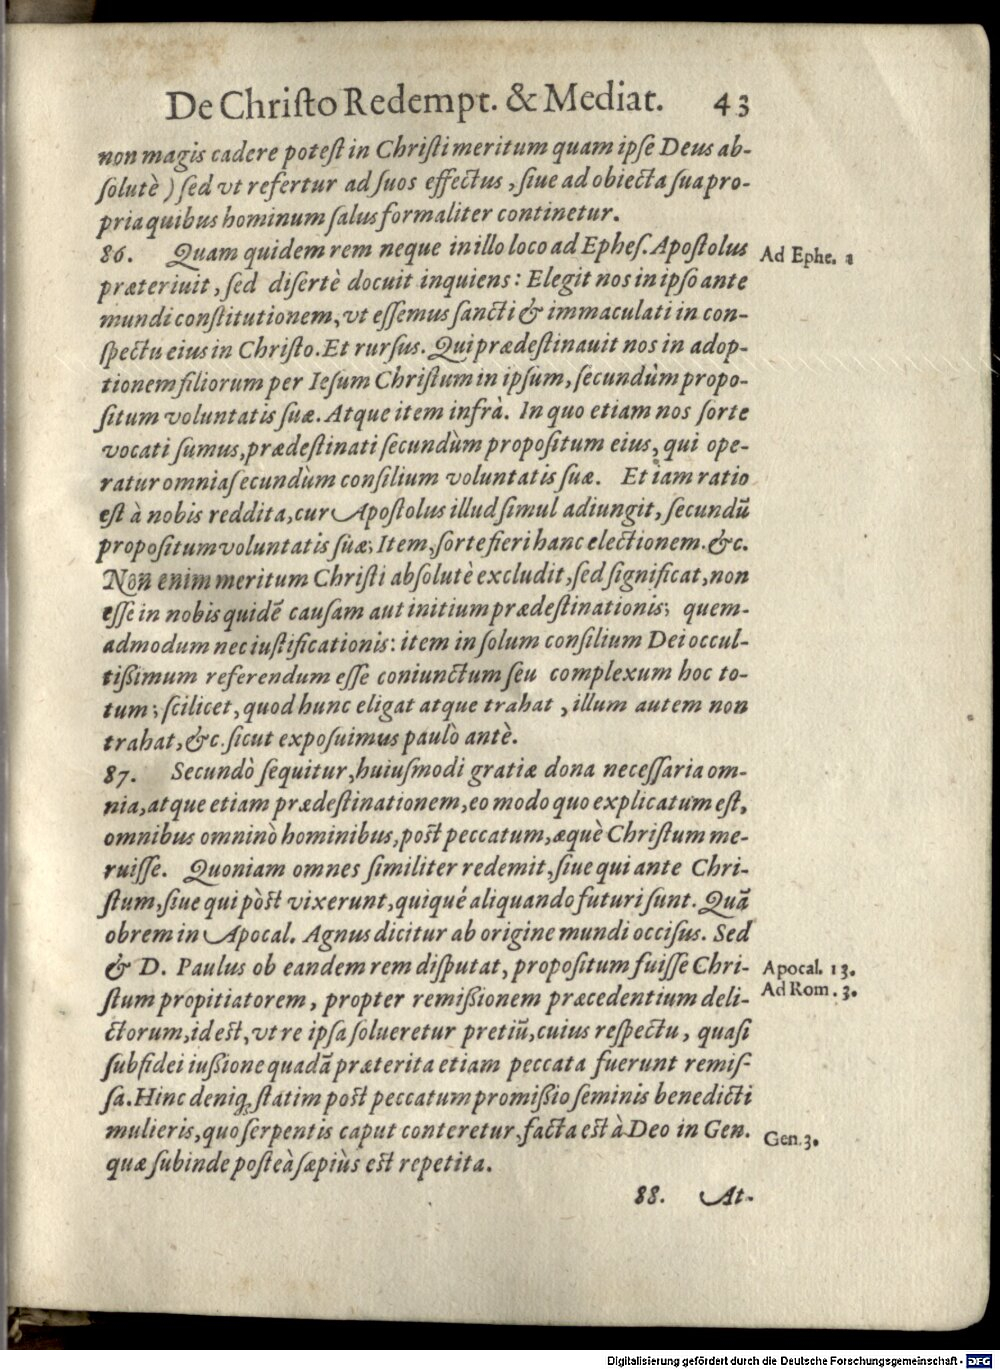 De Chriſto Redempt. & Mediat. 43
non magis cadere poteſt in Chriſti meritum quam ipſe Deus ab-
ſolutè ) ſed vt refertur ad ſuos effectus, ſiue ad obiecta ſua pro-
pria quibus hominum ſalus formaliter continetur.
86. Quam quidem rem neque in illo loco ad Epheſ. Apoſtolus
Ad Ephe. 1
præteriuit, ſed diſertè docuit inquiens: Elegit nos in ipſo ante
mundi conſtitutionem, vt eſſemus ſancti & immaculati in con-
ſpectu eius in Chriſto. Et rurſus. Qui prædeſtinauit nos in adop-
tionem filiorum per Ieſum Chriſtum in ipſum, ſecundùm propo-
ſitum voluntatis ſuæ. Atque item infrà. In quo etiam nos ſorte
vocati ſumus, prædeſtinati ſecundùm propoſitum eius, qui ope-
ratur omnia ſecundùm conſilium voluntatis ſuæ. Et iam ratio
eſt à nobis reddita, cur Apoſtolus illud ſimul adiungit, ſecundũ
propoſitum voluntatis ſuæ; Item, ſorte fieri hanc electionem. &c.
Non enim meritum Chriſti abſolutè excludit, ſed ſignificat, non
eſſe in nobis quidẽ cauſam aut initium prædeſtinationis; quem-
admodum nec iuſtificationis: item in ſolum conſilium Dei occul-
tißimum referendum eſſe coniunctum ſeu complexum hoc to-
tum; ſcilicet, quod hunc eligat atque trahat, illum autem non
trahat, &c. ſicut expoſuimus paulò antè.
87. Secundò ſequitur, huiuſmodi gratiæ dona neceſſaria om-
nia, atque etiam prædeſtinationem, eo modo quo explicatum eſt,
omnibus omninò hominibus, poſt peccatum, æquè Chriſtum me-
ruiſſe. Quoniam omnes ſimiliter redemit, ſiue qui ante Chri-
ſtum, ſiue qui pòſt vixerunt, quiqué aliquando futuri ſunt. Quã
obrem in Apocal. Agnus dicitur ab origine mundi occiſus. Sed
& D. Paulus ob eandem rem diſputat, propoſitum fuiſſe Chri-
Apocal. 13.
ſtum propitiatorem, propter remißionem præcedentium deli-
Ad Rom. 3.
ctorum, id eſt, vt re ipſa ſolueretur pretiũ, cuius reſpectu, quaſi
ſubfidei iußione quadã præterita etiam peccata fuerunt remiſ-
ſa. Hinc deniq; ſtatim poſt peccatum promißio ſeminis benedicti
mulieris, quo ſerpentis caput conteretur, facta eſt à Deo in Gen.
Gen. 3.
quæ ſubinde poſteà ſæpiùs eſt repetita.
88. At-
Digitalisierung gefördert durch die Deutsche Forschungsgemeinschaft - DFG